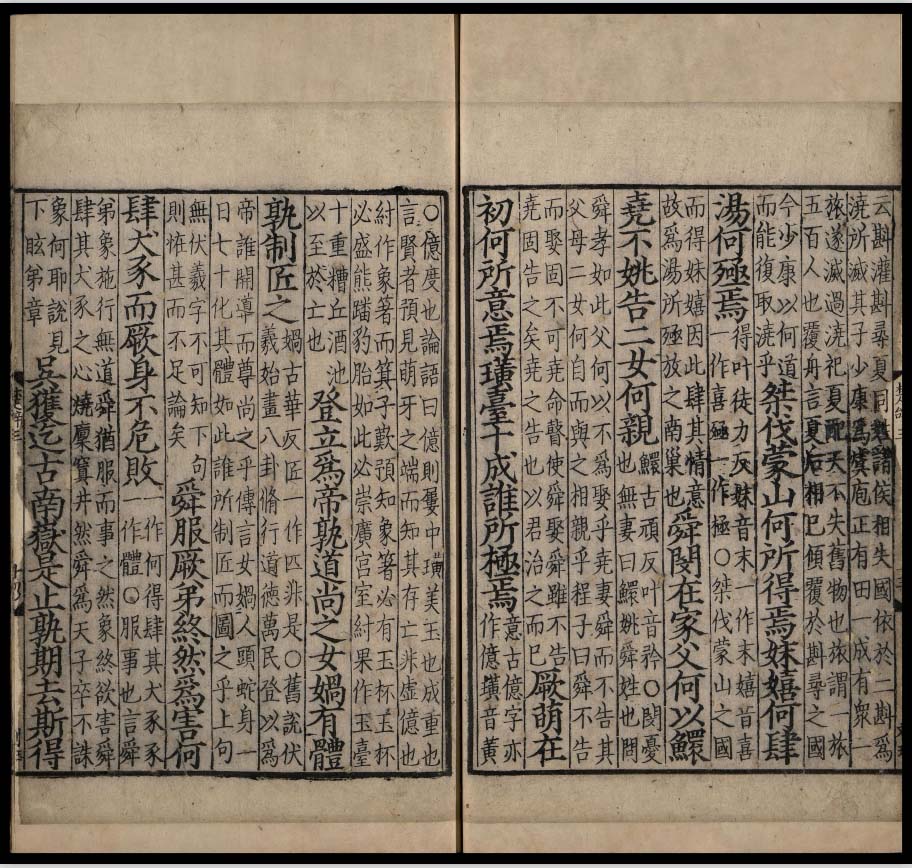 云斟灌斟尋夏同姓諸侯相失國依於二斟為
澆所滅其子少康為虞庖正有田一成有衆一
旅遂滅過澆祀夏配天不失舊物也旅謂一旅
五百人也覆舟言夏后相已傾覆於斟尋之國
今少康以何道
而能復取澆乎
桀伐蒙山何所得焉妹嬉何肆
湯何殛焉
得叶徒力反妹音末一作末嬉音喜
一作喜殛一作極○桀伐蒙山之國
而得妹嬉因此肆其情意
故為湯所殛放之南巢也
舜閔在家父何以鱞
堯不姚告二女何親
鱞古頑反叶音矜○閔憂
也無妻曰鱞姚舜姓也問
舜孝如此父何以不為娶乎堯妻舜而不告其
父母二女何自而與之相親乎程子曰舜不告
而娶固不可堯命瞽使舜娶舜雖不告
堯固告之矣堯之告也以君治之而已
厥萌在
初何所意焉璜臺十成誰所極焉
意古億字亦
作億璜音黃
○億度也論語曰億則屢中璜美玉也成重也
言賢者預見萌牙之端而知其存亡非虛億也
紂作象箸而箕子歎預知象箸必有玉杯玉杯
必盛熊蹯豹胎如此必崇廣宮室紂果作玉臺
十重糟丘酒池
以至於亡也
登立為帝孰道尚之女媧有體
孰制匠之
媧古華反匠一作匹非是○舊說伏
羲始畫八卦脩行道德萬民登以為
帝誰開導而尊尚之乎傳言女媧人頭蛇身一
日七十化其體如此誰所制匠而圖之乎上句
無伏羲字不可知下句
則怪甚而不足論矣
舜服厥弟終然為害何
肆犬豕而厥身不危敗
一作何得肆其犬豕
一作體○服事也言舜
弟象施行無道舜猶服而事之然象終欲害舜
肆其犬豕之心燒廩窴井然舜為天子卒不誅
象何耶說見
下眩弟章
吳獲迄古南嶽是止孰期去斯得